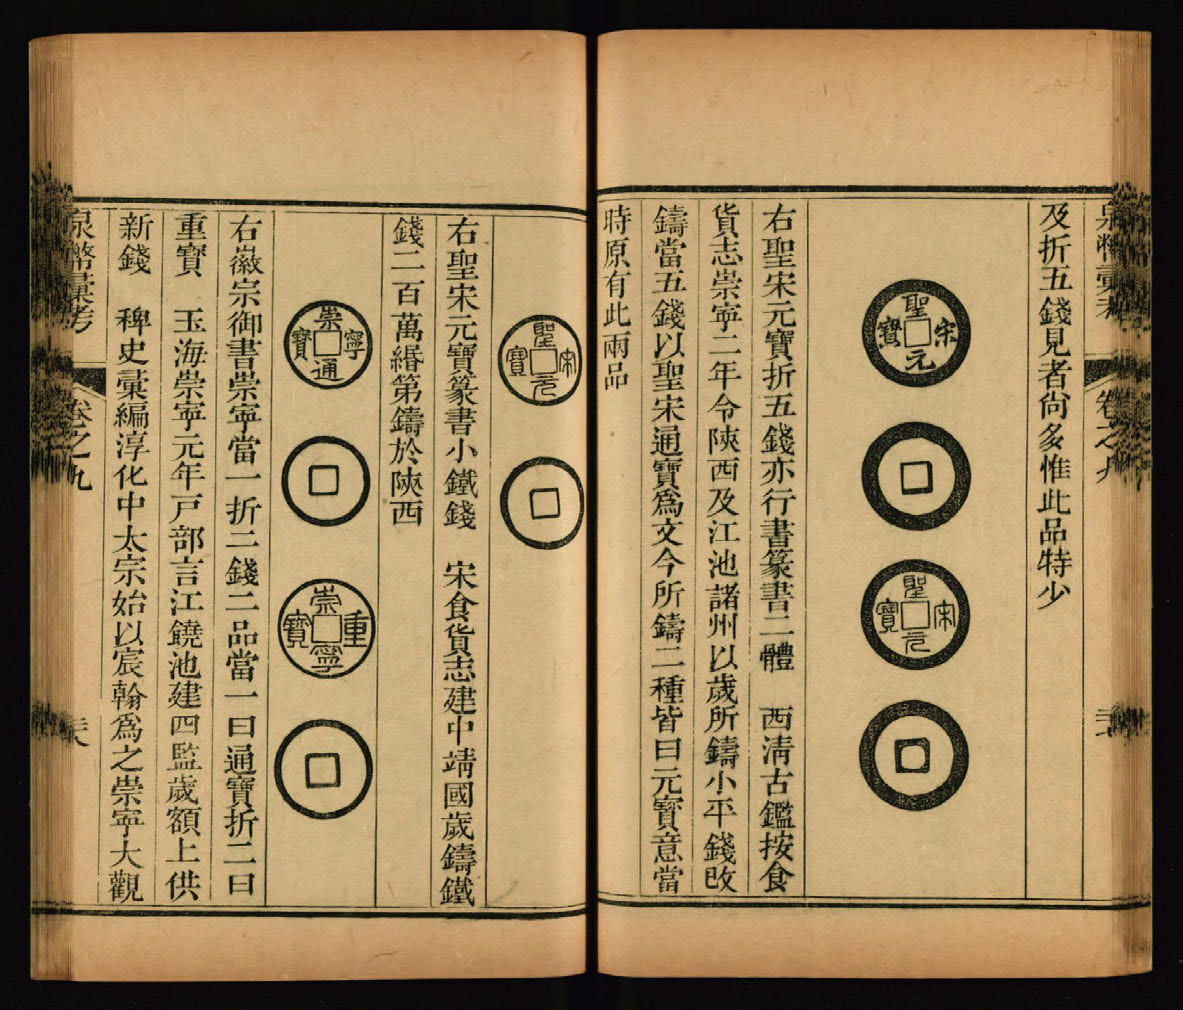 泉幣彙考
卷之九
及折五錢見者尙多惟此品特少
聖宋元寶
聖宋元寶
右聖宋元寶折五錢亦行書篆書二體　西淸古鑑按食
貨志崇寧二年令陝西及江池諸州以歲所鑄小平錢改
鑄當五錢以聖宋通寶爲文今所鑄二種皆曰元寶意當
時原有此兩品
聖宋元寶
右聖宋元寶篆書小鐵錢　宋食貨志建中靖國歲鑄鐵
錢二百萬緡第鑄於陝西
崇寧通寶
崇寧重寶
右徽宗御書崇寧當一折二錢二品當一曰通寶折二曰
重寶　玉海崇寧元年戸部言江饒池建四監歲額上供
新錢　稗史彙編淳化中太宗始以宸翰爲之崇寧大觀
泉幣彙考
卷之九